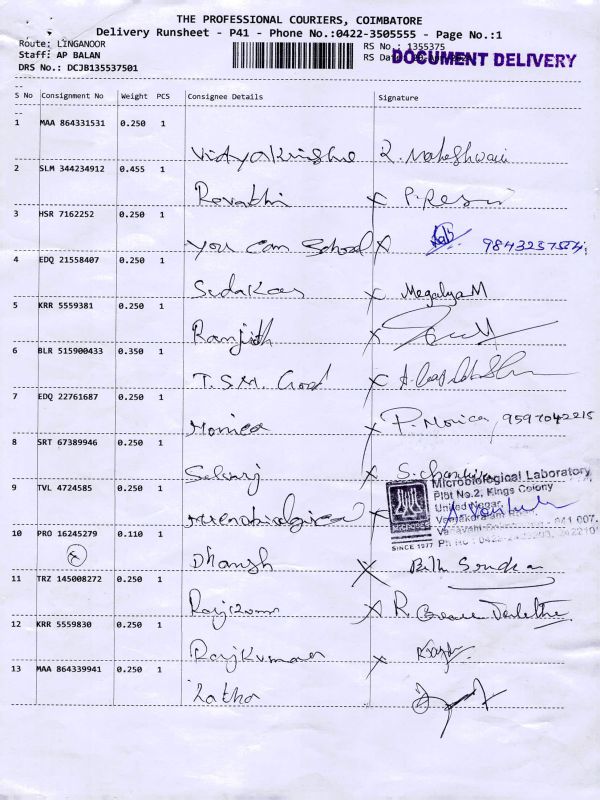 THE PROFESSIONAL COURIERS, COIMBATORE
Delivery Runsheet - P41 - Phone No.:0422-3505555 - Page No.:1
Route: LINGANOOR
RS No : 1355375
Staff: AP BALAN
RS Dat
DOCUMENT DELIVERY
DRS No.: DCJB135537501
S No Consignment No Weight PCS Consignee Details Signature
1 MAA 864331531 0.250 1
Vidyakrishna R. Maheshwari
2 SLM 344234912 0.455 1
Revathi X P.
3 HSR 7162252 0.250 1
You Can School X
4 EDQ 21558407 0.250 1
Sudakar X Megalya M
5 KRR 5559381 0.250 1
Ranjith X
6 BLR 515900433 0.350 1
T.S.M. X
7 EDQ 22761687 0.250 1
Monica X P. Monica, 9597042215
8 SRT 67389946 0.250 1
X S.
9 TVL 4724585 0.250 1
Microbiological Laboratory
Plot No.2, Kings Colony
United Nagar,
SINCE 1977
10 PRO 16245279 0.110 1
X
11 TRZ 145008272 0.250 1
X R.
12 KRR 5559830 0.250 1
Rajkumar X
13 MAA 864339941 0.250 1
Latha